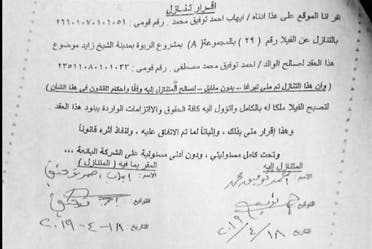 إقرار تنازل
نقر انا الموقع على هذا ادناه / ايهاب احمد توفيق محمد . رقم قومى / ٢٦٦٠١٠٧٠١٠١٠٥١
بالتنازل عن الفيلا رقم ( ٢٩ ) بالمجموعة ( A ) بمشروع الربوة بمدينة الشيخ زايد موضوع
هذا العقد لصالح الوالد / احمد توفيق محمد مصطفى . رقم قومى / ٢٣٥١١٠٨٠١٠١٠٣٣
( وان هذا التنازل تم منى تبرعا - بدون مقابل - لصالح المتنازل إليه وفقا واحكام القانون فى هذا الشان )
لتصبح الفيلا ملكا له بالكامل وتؤول اليه كافة الحقوق والالتزامات الواردة ببنود هذا العقد .
وهذا إقرار منى بذلك ، وإثباتاً لما تم الاتفاق عليه ، ولنفاذ أثره قانونا
وتحت كامل مسئوليتي ، ودون أدنى مسئولية على الشركة البائعة ...
المقر بما فيه ( المتنازل ) المتنازل إليه
الاسم : ايهاب احمد توفيق الاسم : احمد توفيق محمد
التوقيع : التوقيع :
التاريخ : ١٨-٤-٢٠١٩ التاريخ : ١٨/٤/٢٠١٩